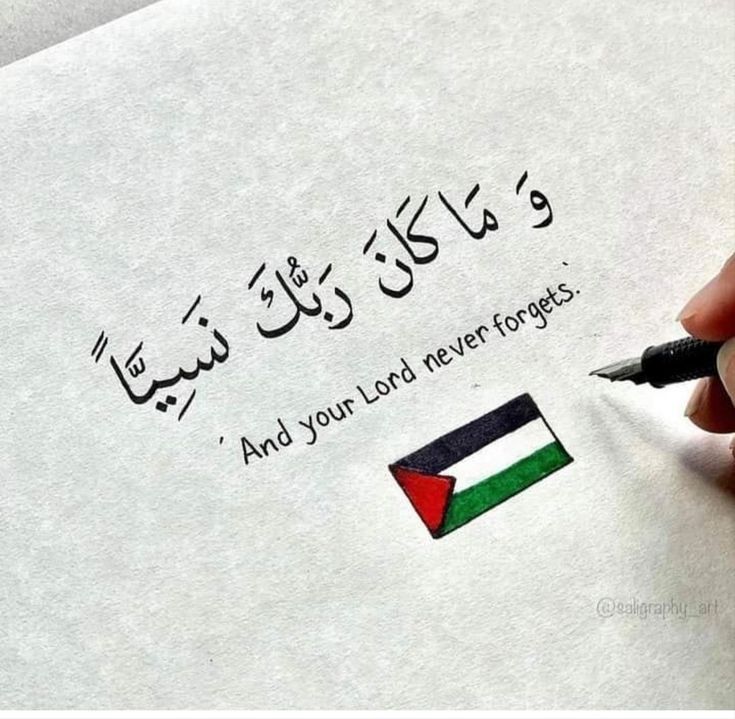 وَ مَا كَانَ رَبُّكَ نَسِيَّاً
‘And your Lord never forgets.’
@saligraphy_art